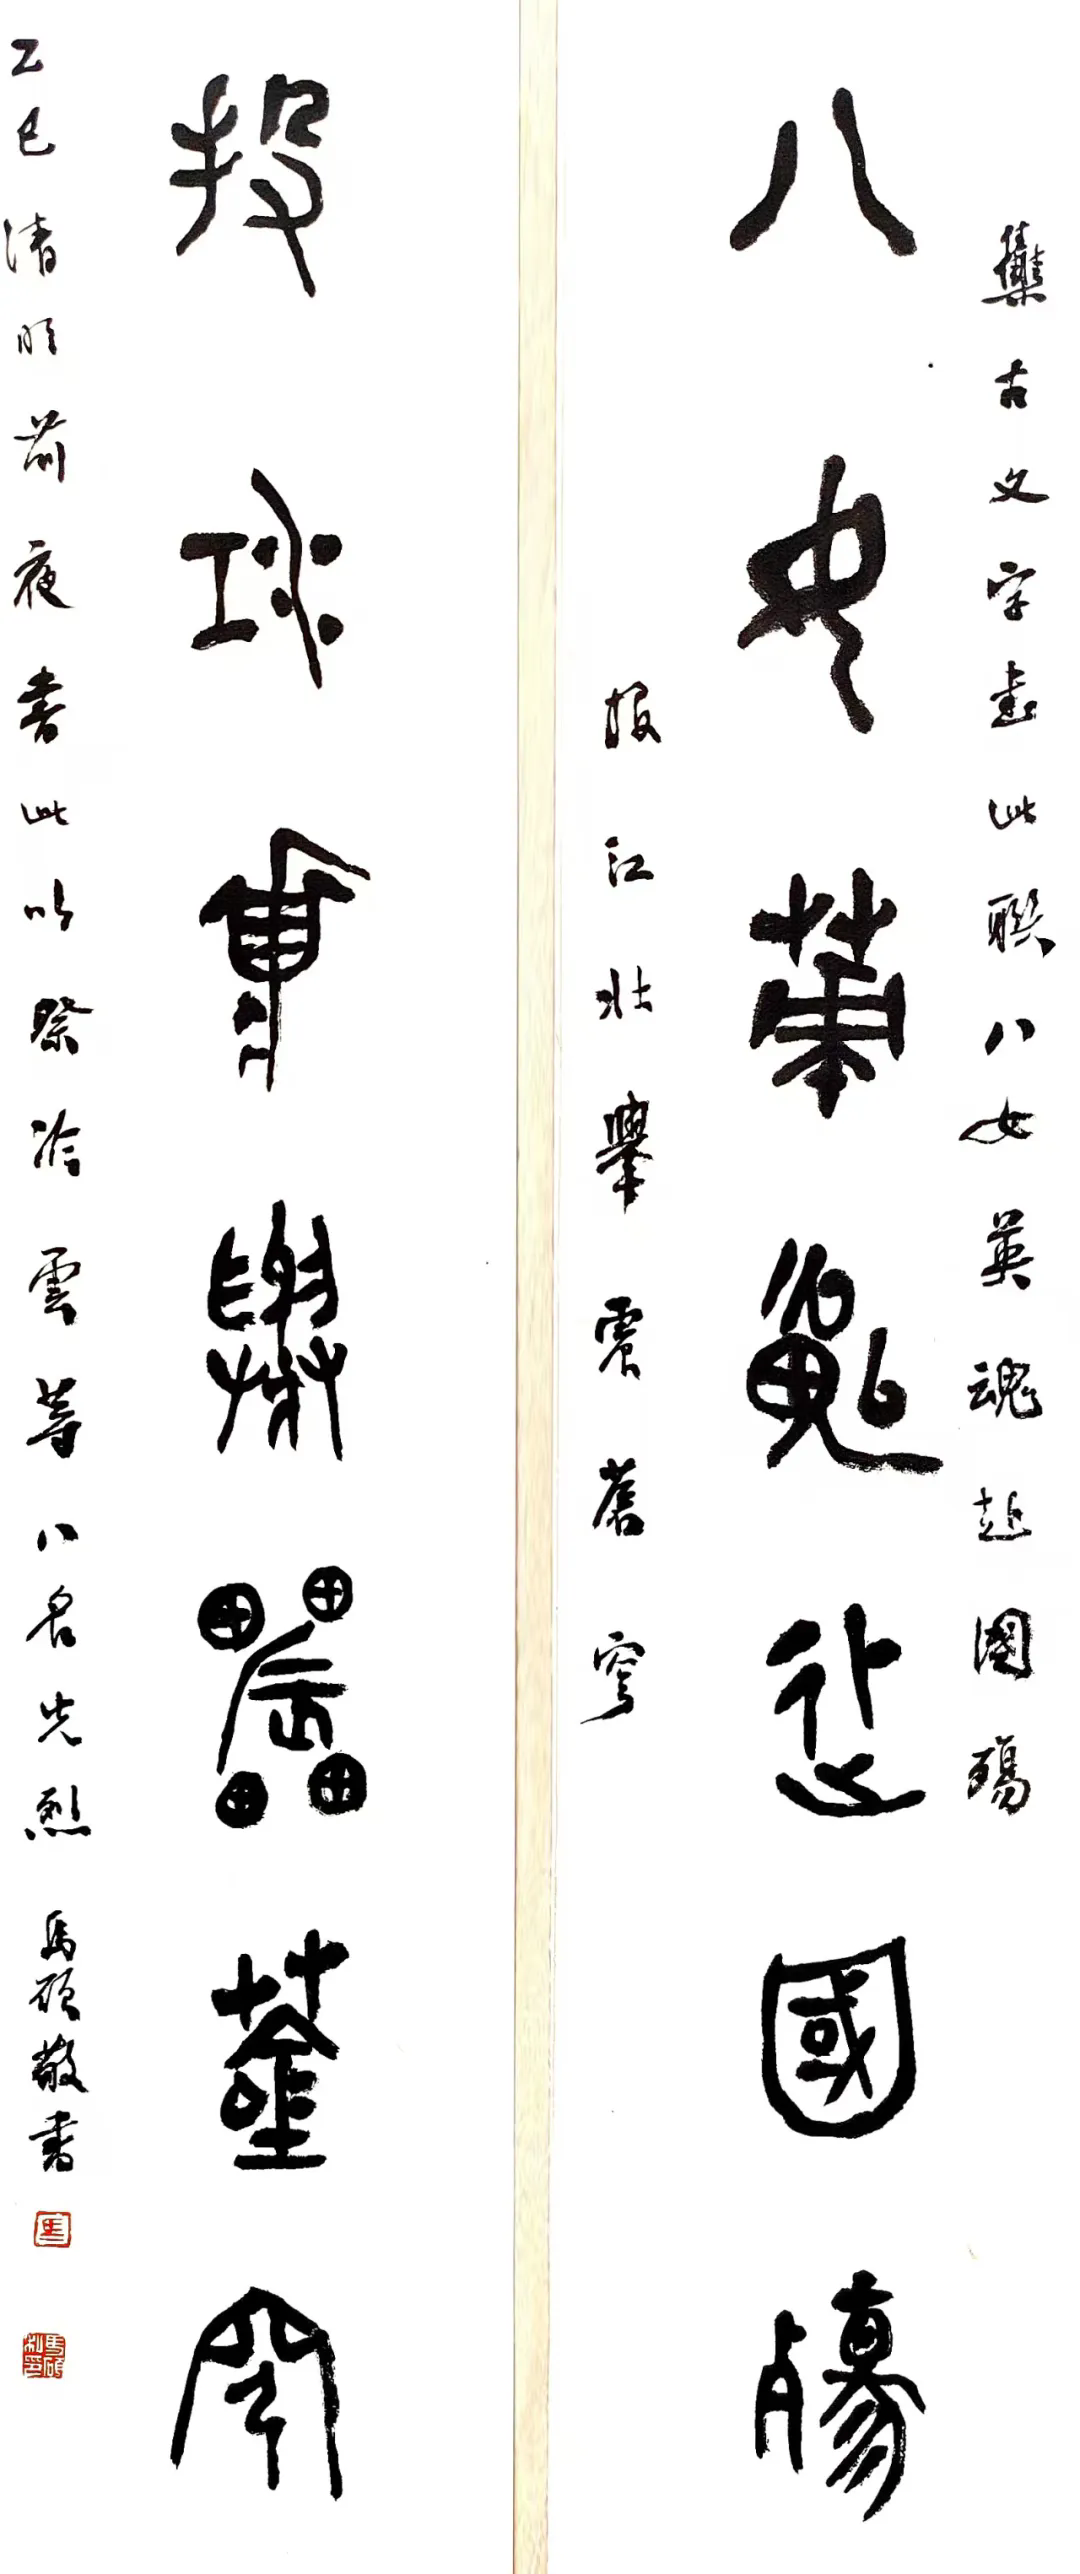 集古文字書此聯八女英魂赴國殤
八女英魂赴國殤
投江壯舉震蒼穹
投江壯舉震蒼穹
乙巳清明前夜書此以祭冷雲等八名先烈 馬碩敬書
馬
馬碩私印